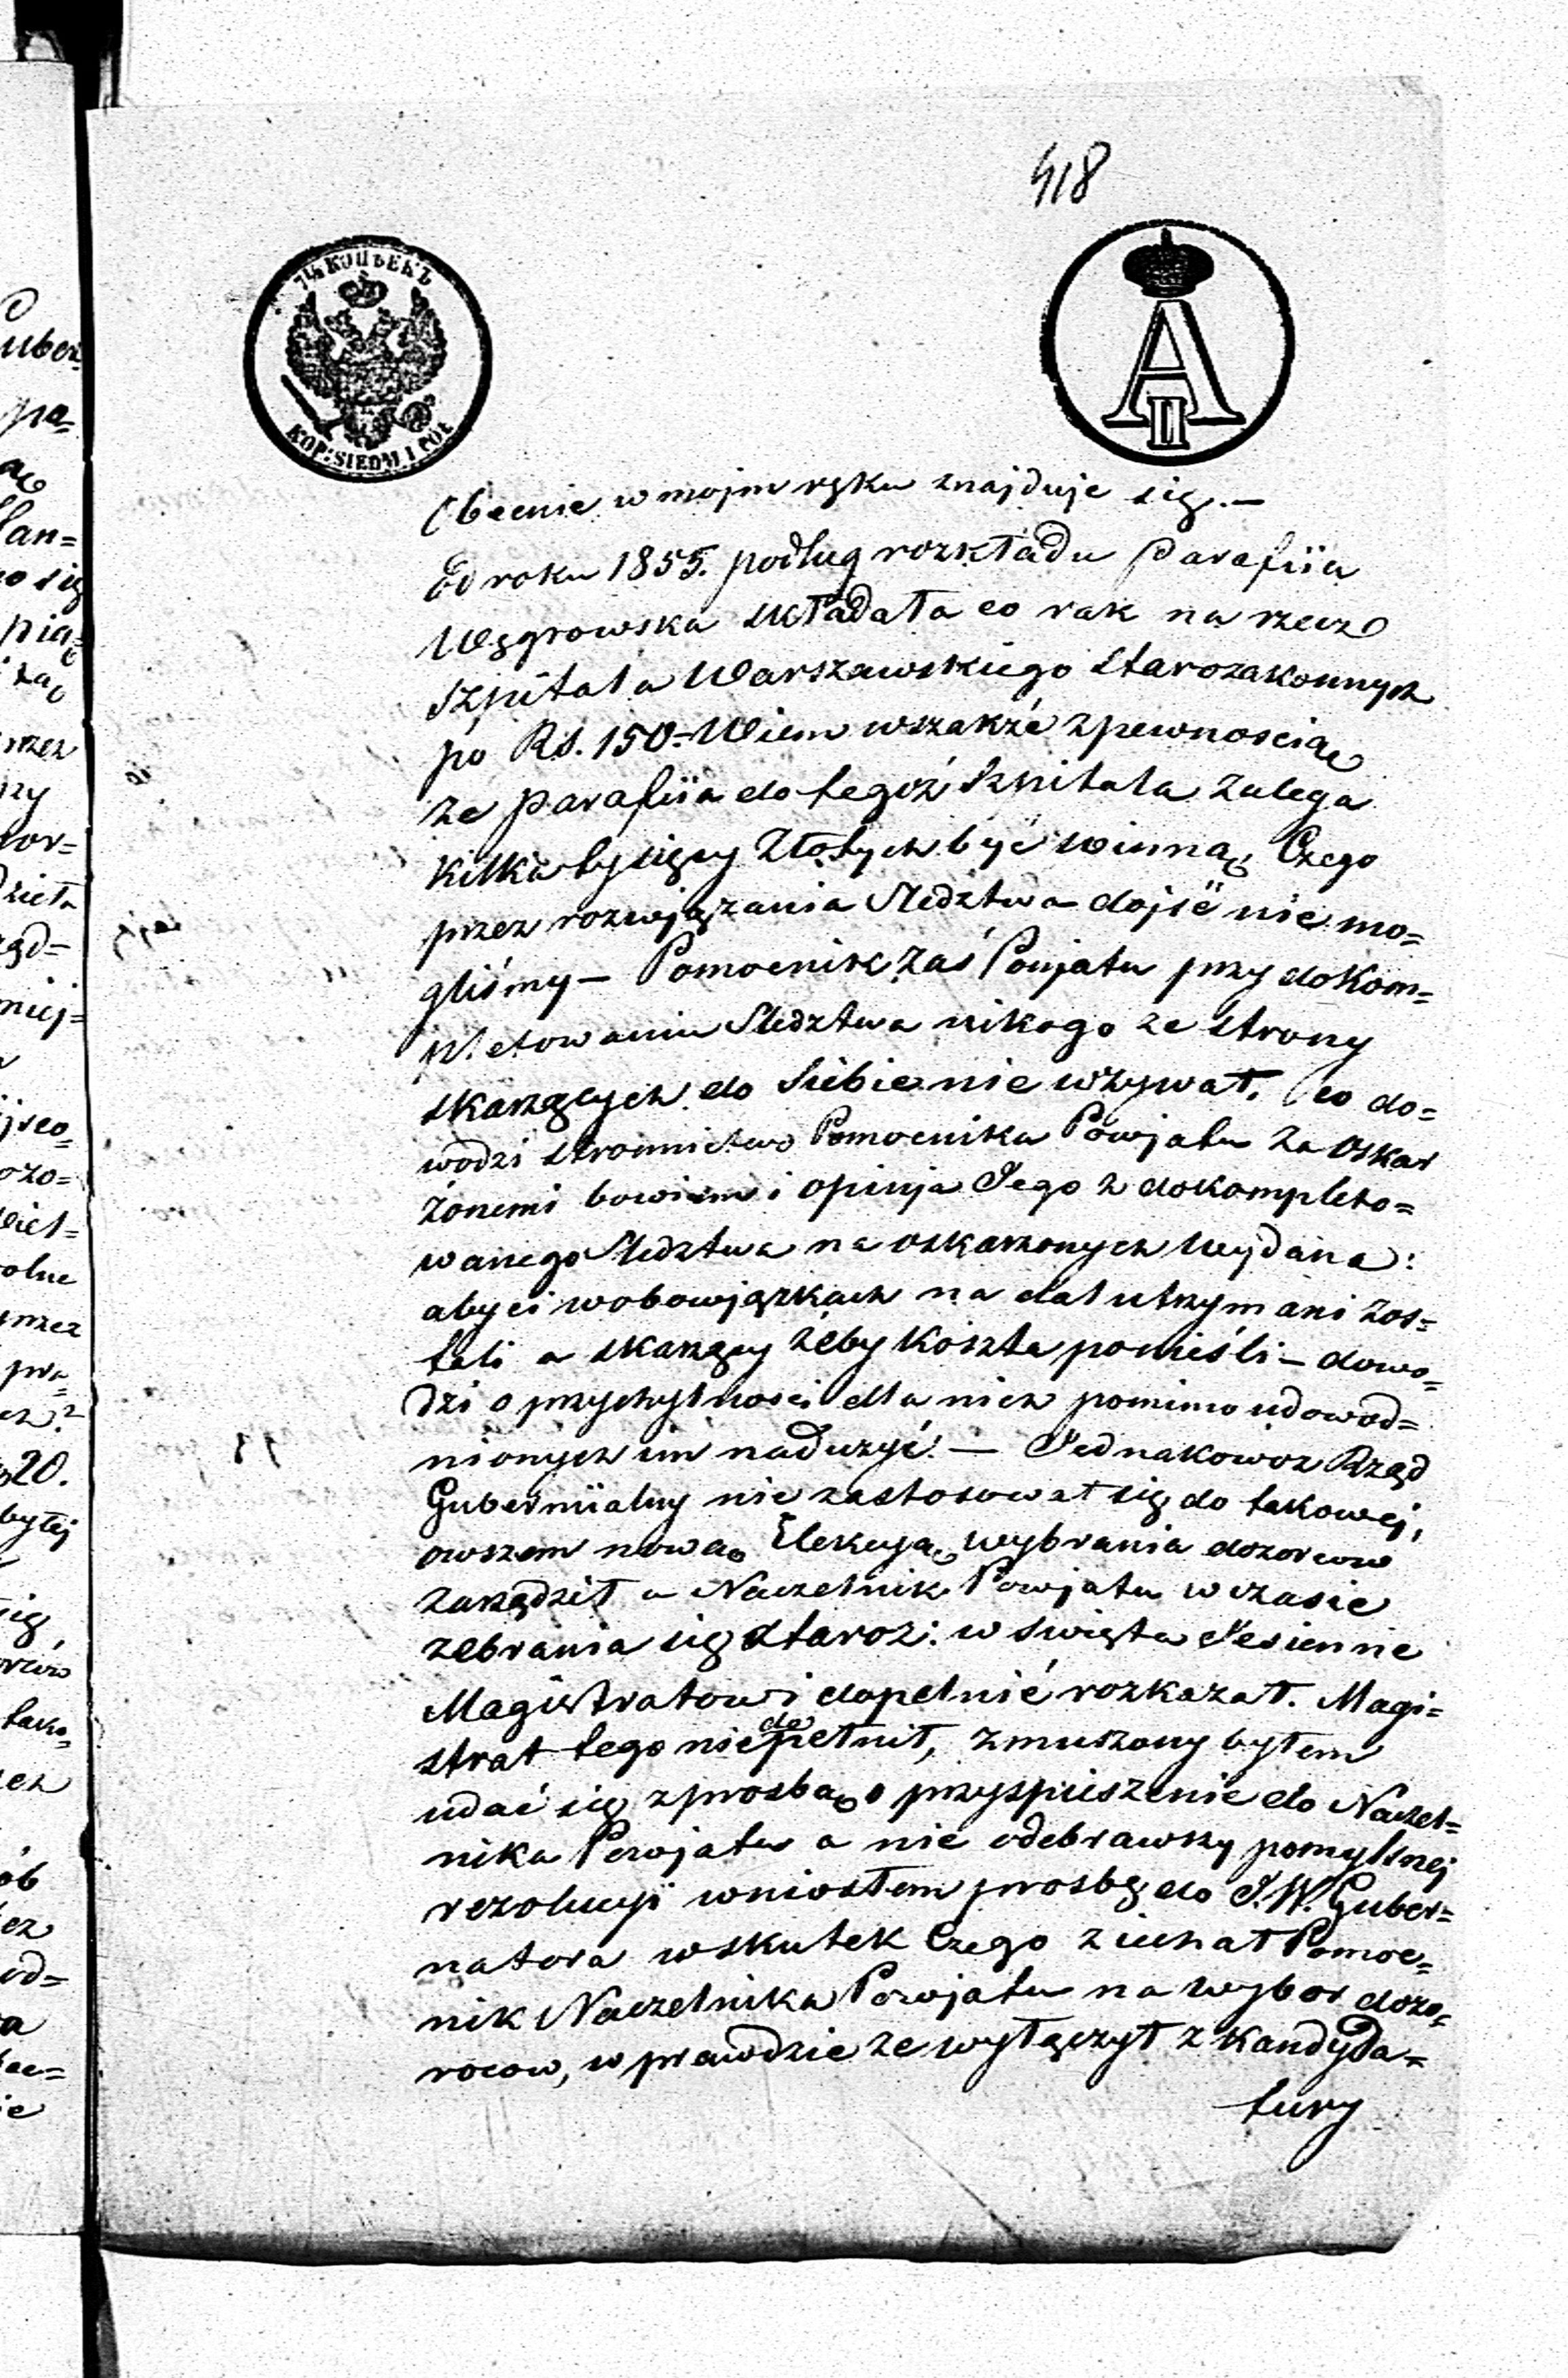 418
7½ КОПѢЕКЪ
KOP: SIEDM I PÓŁ
A II
Obecnie w mojm ręku znajduje się. —
Od roku 1855. podług rozkładu Parafiia
Węgrowska składała co rak na rzecz
Szpitala Warszawskiego Starozakonnych
po Rs. 150 = Wiem wszakże z pewnością
ze parafiia do tegoż Szpitala zalega
kilka tysięcy Złotych być winną, Czego
przez rozwjązania Sledztwa dojść nie mo=
gliśmy — Pomocnik zaś Powjatu przy dokom=
pletowaniu Sledztwa nikogo ze strony
skarzących do Siebie nie wzywał. Co do=
wodzi stronnictwo Pomocnika Powjatu za oskar
żonemi bowiem i opinja Jego z dokompleto=
wanego Sledztwa na oskarzonych wydana:
aby ci w obowjązkach na dal utrzymani zos=
tali a skarzący żeby koszta ponieśli — dowo=
dzi o przychylności dla nich pomimo udowod=
nionych im nadużyć. — Jednakowoz Rząd
Guberniialny nie zastosował się do takowej,
owszem nową Elekcyą wybrania dozorcow
zarządził a Naczelnik Powjatu w czasie
zebrania się Staroz: w swięta Jesienne
Magistratowi dopełnić rozkazał. Magi=
strat tego nie dopełnił, zmuszony byłem
udać się z prosbą o przyspieszenie do Naczel=
nika Powjatu a nie odebrawszy pomyslnej
rezolucyi wniosłem prosbę do J.W. Guber=
natora wskutek Czego ziechał Pomoc=
nik Naczelnika Powjatu na wybor dozo=
rcow, w prawdzie ze wyłączył z kandyda=
tury